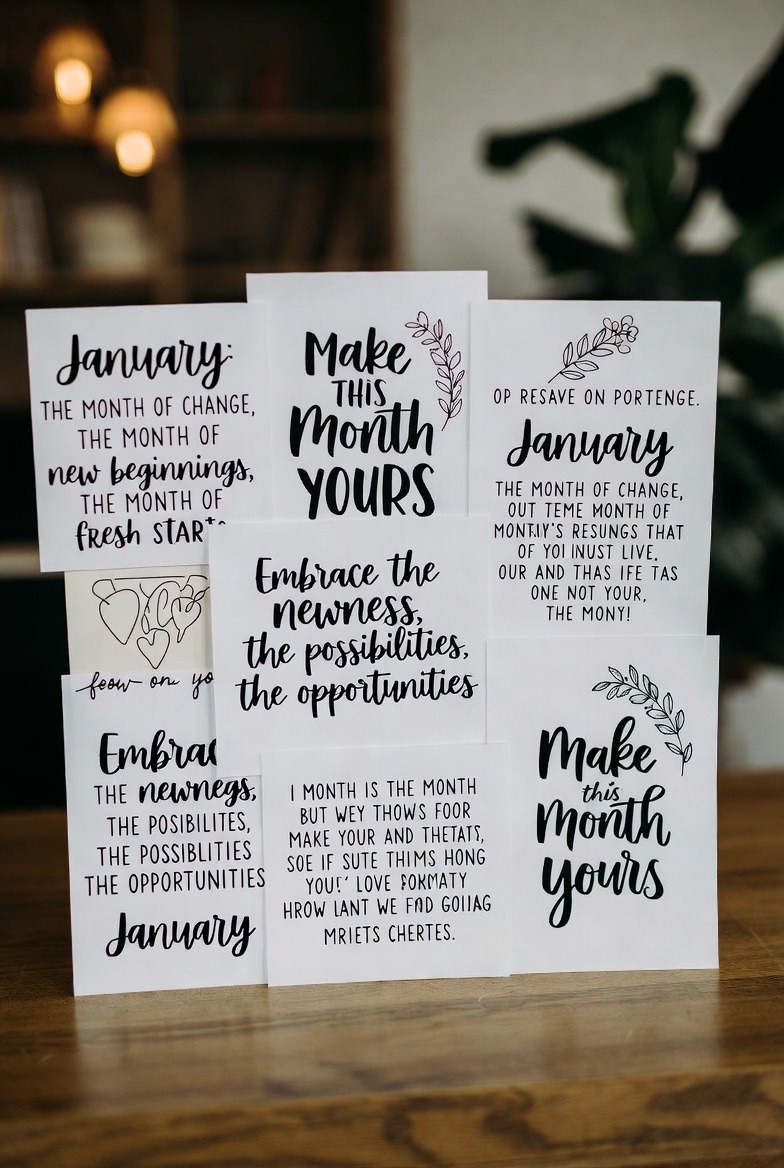 January:
THE MONTH OF CHANGE,
THE MONTH OF
new beginnings,
THE MONTH OF
fresh START
Make
THIS
Month
YOURS
OP RESAVE ON PORTENGE.
January
THE MONTH OF CHANGE,
OUT TEME MONTH OF
RESUNGS THAT
OF YOI INUST LIVE,
OUR AND THAS IFE TAS
ONE NOT YOUR,
THE MONY!
Embrace the
newness,
the possibilities,
the opportunities
feow on yo
Embrac
THE newnegs,
THE POSIBILITES,
THE POSSIBLITIES
THE OPPORTUNITIES
January
I MONTH IS THE MONTH
BUT WEY THOWS FOOR
MAKE YOUR AND THETATS,
SOE IF SUTE THIMS HONG
YOU!' LOVE
HROW LANT WE GOIIAG
MRIETS CHERTES.
Make
this
Month
yours